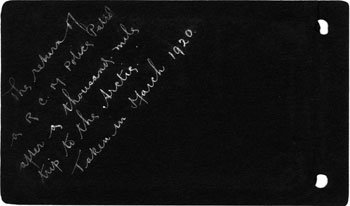 The return of
a R C M Police Patrol
after a thousand mile
trip to the Arctic.
Taken in March 1920.